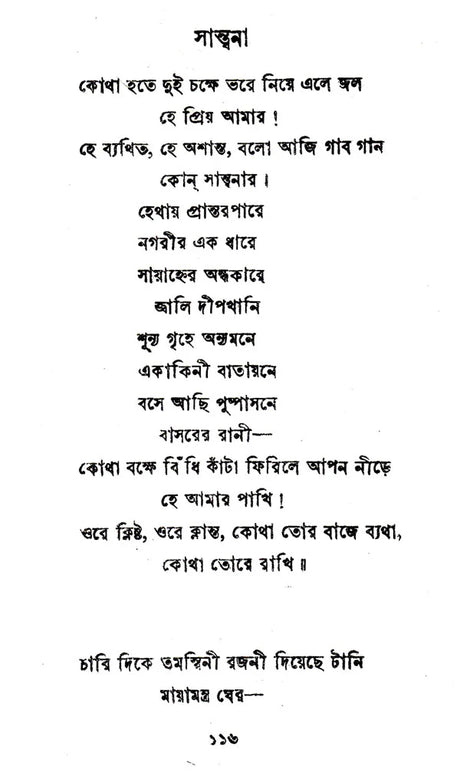 সান্ত্বনা
কোথা হতে দুই চক্ষে ভরে নিয়ে এলে জল
হে প্রিয় আমার !
হে ব্যথিত, হে অশান্ত, বলো আজি গাব গান
কোন্ সান্ত্বনার ।
হেথায় প্রান্তরপারে
নগরীর এক ধারে
সায়াহ্নের অন্ধকারে
জ্বালি দীপখানি
শূন্য গৃহে অন্যমনে
একাকিনী বাতায়নে
বসে আছি পুষ্পাসনে
বাসরের রানী—
কোথা বক্ষে বিঁধি কাঁটা ফিরিলে আপন নীড়ে
হে আমার পাখি !
ওরে ক্লিষ্ট, ওরে ক্লান্ত, কোথা তোর বাজে ব্যথা,
কোথা তোরে রাখি ॥
চারি দিকে তমস্বিনী রজনী দিয়েছে টানি
মায়ামন্ত্র ঘের—
১১৬